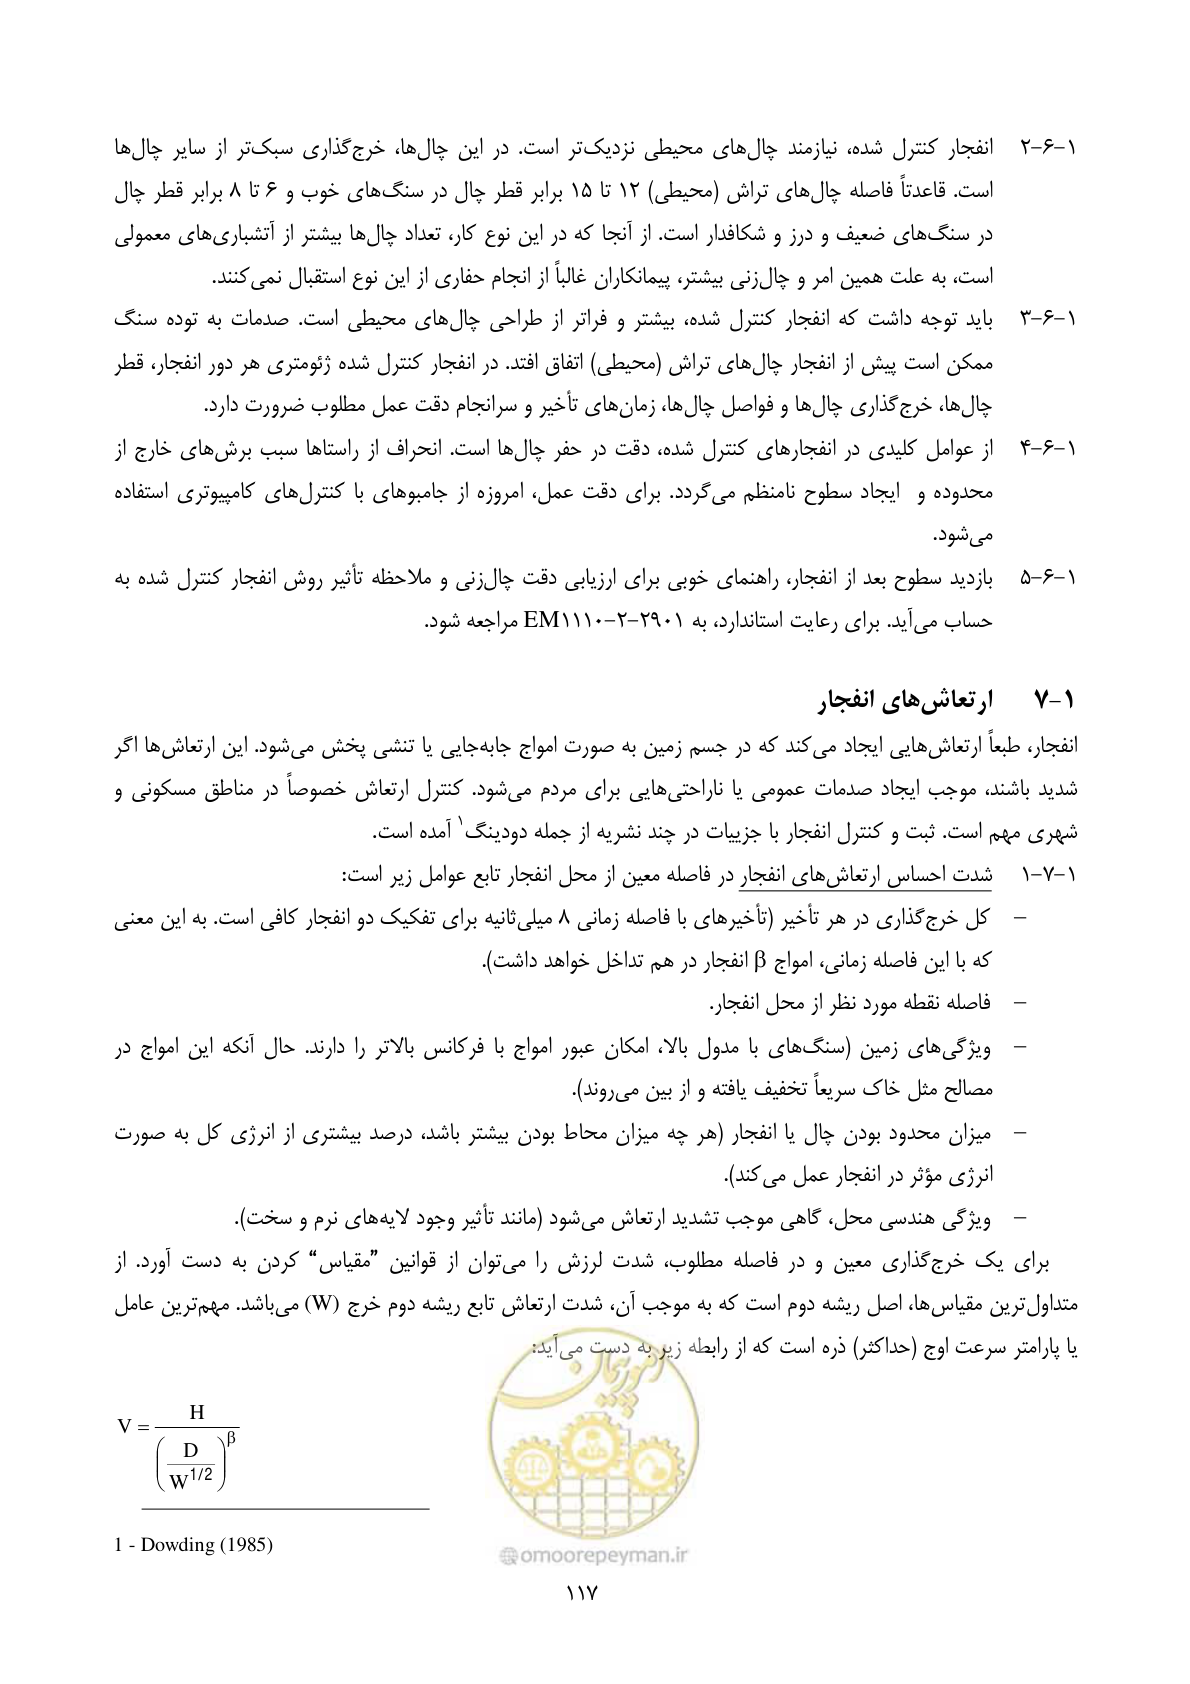 ۱-۶-۲ انفجار کنترل شده، نیازمند چال‌های محیطی نزدیک‌تر است. در این چال‌ها، خرج‌گذاری سبک‌تر از سایر چال‌ها
است. قاعدتاً فاصله چال‌های تراش (محیطی) ۱۲ تا ۱۵ برابر قطر چال در سنگ‌های خوب و ۶ تا ۸ برابر قطر چال
در سنگ‌های ضعیف و درز و شکافدار است. از آنجا که در این نوع کار، تعداد چال‌ها بیشتر از آتشباری‌های معمولی
است، به علت همین امر و چال‌زنی بیشتر، پیمانکاران غالباً از انجام حفاری از این نوع استقبال نمی‌کنند.
۱-۶-۳ باید توجه داشت که انفجار کنترل شده، بیشتر و فراتر از طراحی چال‌های محیطی است. صدمات به توده سنگ
ممکن است پیش از انفجار چال‌های تراش (محیطی) اتفاق افتد. در انفجار کنترل شده ژئومتری هر دور انفجار، قطر
چال‌ها، خرج‌گذاری چال‌ها و فواصل چال‌ها، زمان‌های تأخیر و سرانجام دقت عمل مطلوب ضرورت دارد.
۱-۶-۴ از عوامل کلیدی در انفجارهای کنترل شده، دقت در حفر چال‌ها است. انحراف از راستاها سبب برش‌های خارج از
محدوده و ایجاد سطوح نامنظم می‌گردد. برای دقت عمل، امروزه از جامبوهای با کنترل‌های کامپیوتری استفاده
می‌شود.
۱-۶-۵ بازدید سطوح بعد از انفجار، راهنمای خوبی برای ارزیابی دقت چال‌زنی و ملاحظه تأثیر روش انفجار کنترل شده به
حساب می‌آید. برای رعایت استاندارد، به EM۱۱۱۰-۲-۲۹۰۱ مراجعه شود.
۱-۷ ارتعاش‌های انفجار
انفجار، طبعاً ارتعاش‌هایی ایجاد می‌کند که در جسم زمین به صورت امواج جابه‌جایی یا تنشی پخش می‌شود. این ارتعاش‌ها اگر
شدید باشند، موجب ایجاد صدمات عمومی یا ناراحتی‌هایی برای مردم می‌شود. کنترل ارتعاش خصوصاً در مناطق مسکونی و
شهری مهم است. ثبت و کنترل انفجار با جزییات در چند نشریه از جمله دودینگ۱ آمده است.
۱-۷-۱ شدت احساس ارتعاش‌های انفجار در فاصله معین از محل انفجار تابع عوامل زیر است:
– کل خرج‌گذاری در هر تأخیر (تأخیرهای با فاصله زمانی ۸ میلی‌ثانیه برای تفکیک دو انفجار کافی است. به این معنی
که با این فاصله زمانی، امواج β انفجار در هم تداخل خواهد داشت).
– فاصله نقطه مورد نظر از محل انفجار.
– ویژگی‌های زمین (سنگ‌های با مدول بالا، امکان عبور امواج با فرکانس بالاتر را دارند. حال آنکه این امواج در
مصالح مثل خاک سریعاً تخفیف یافته و از بین می‌روند).
– میزان محدود بودن چال یا انفجار (هر چه میزان محاط بودن بیشتر باشد، درصد بیشتری از انرژی کل به صورت
انرژی مؤثر در انفجار عمل می‌کند).
– ویژگی هندسی محل، گاهی موجب تشدید ارتعاش می‌شود (مانند تأثیر وجود لایه‌های نرم و سخت).
برای یک خرج‌گذاری معین و در فاصله مطلوب، شدت لرزش را می‌توان از قوانین ”مقیاس“ کردن به دست آورد. از
متداول‌ترین مقیاس‌ها، اصل ریشه دوم است که به موجب آن، شدت ارتعاش تابع ریشه دوم خرج (W) می‌باشد. مهم‌ترین عامل
یا پارامتر سرعت اوج (حداکثر) ذره است که از رابطه زیر به دست می‌آید:
امور پیمان
V = H / (D / W^1/2)^β
1 - Dowding (1985)
@omoorepeyman.ir
۱۱۷